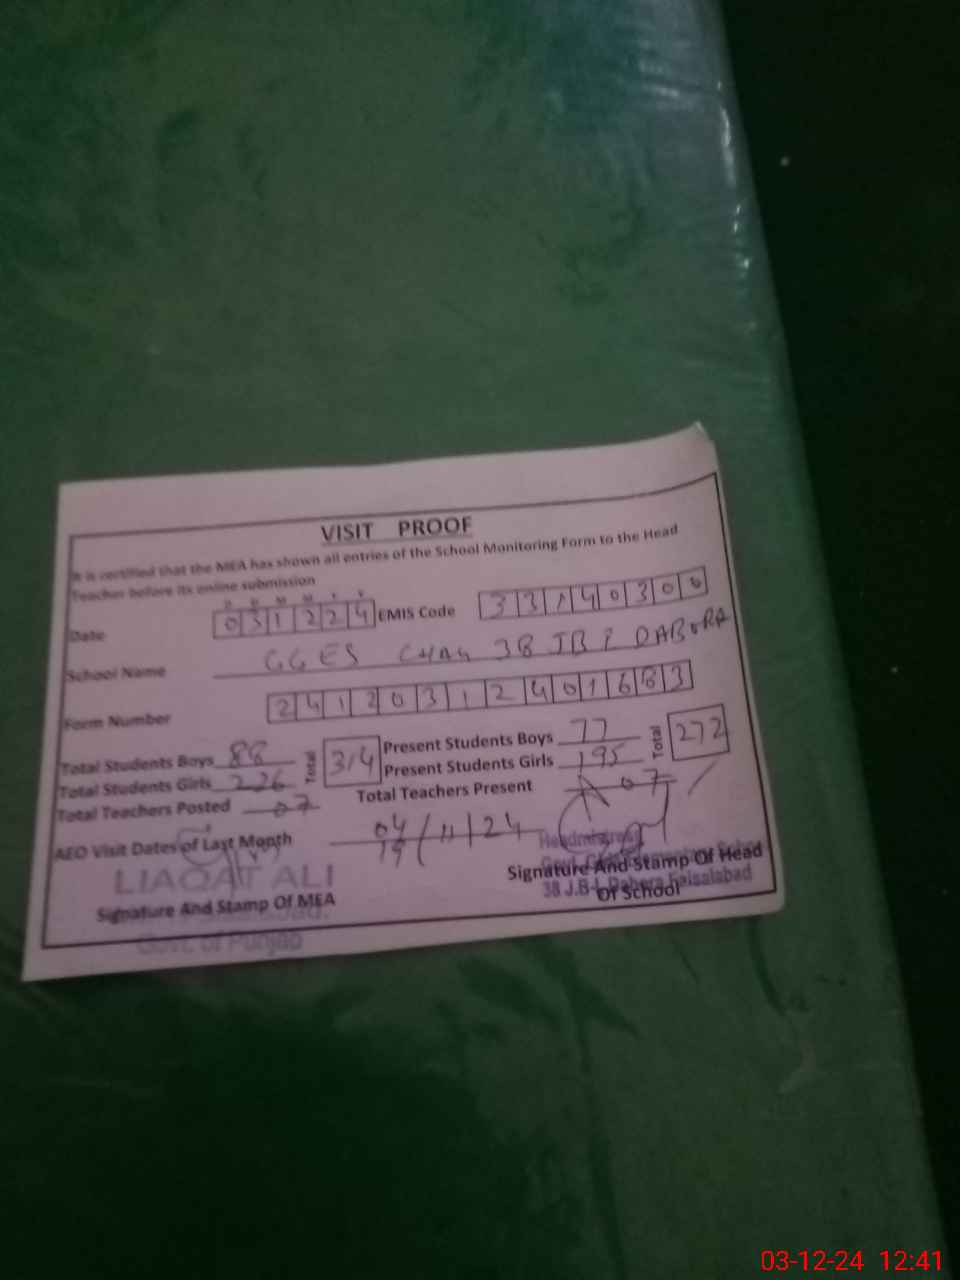 VISIT PROOF
It is certified that the MEA has shown all entries of the School Monitoring Form to the Head
Teacher before its online submission
D D M M Y Y
Date 031224 EMIS Code 33140300
School Name GGES CHAG 38 JB I DABORA
Form Number 24120312401683
Total Students Boys 88 Total 314 Present Students Boys 77 Total 272
Total Students Girls 226 Present Students Girls 195
Total Teachers Posted 07 Total Teachers Present 07
AEO Visit Dates of Last Month 04/11/24
19
LIAQAT ALI
Signature And Stamp Of MEA
Govt. of Punjab
Headmistress
Signature And Stamp Of Head
38 J.B-I Faisalabad
Of School
03-12-24 12:41